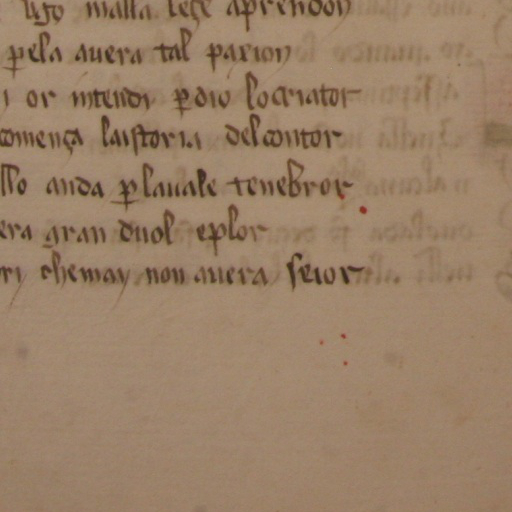 ugo malla leçe aprendon
pela auera tal paxion
i or intendi p dio lo criator
comença laistoria del contor
llo anda p la uale tenebror
era gran duol e plor
ri che may non auera seior